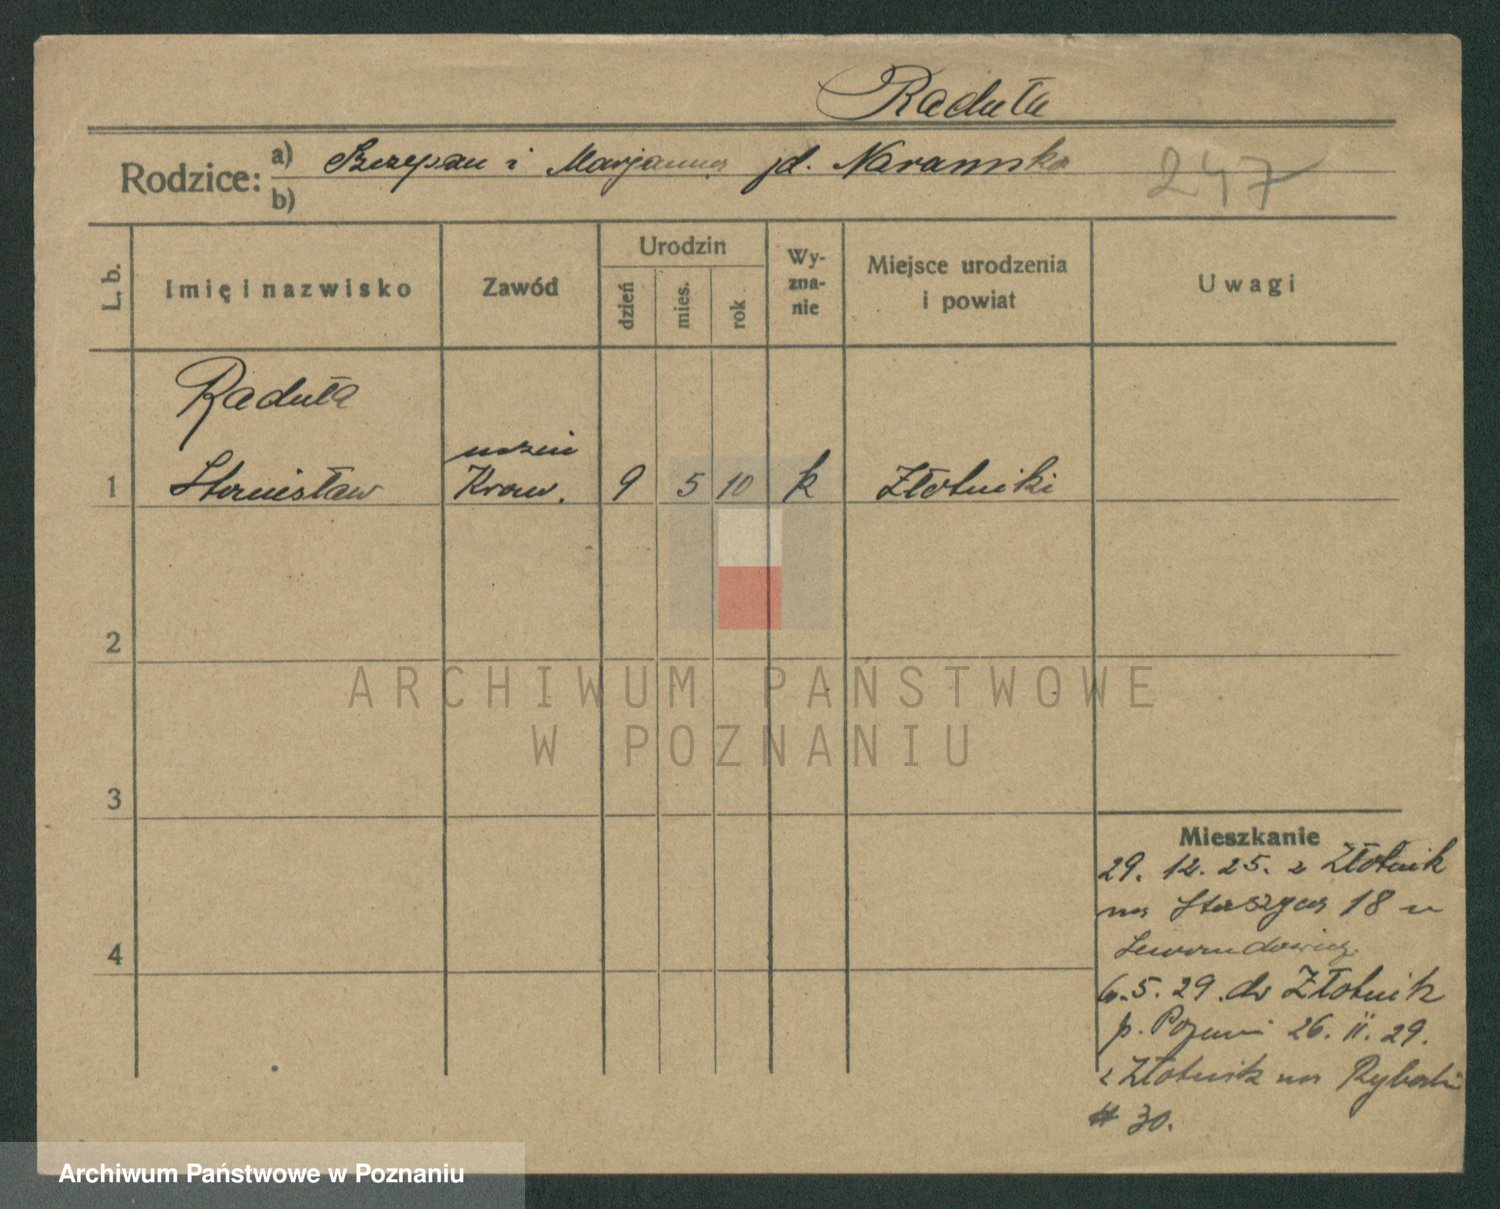 Raduła
Rodzice: a) Szczepan i Marjanna jd. Naramska
b)
247
L. b.
Imię i nazwisko
Zawód
Urodzin
dzień
mies.
rok
Wy-
zna-
nie
Miejsce urodzenia
i powiat
Uwagi
Raduła
uczeń
1 Stanisław Kraw. 9 5 10 k Złotniki
2
3
4
Mieszkanie
29. 12. 25. z Złotnik
na Staszyca 18 u
6.5.29. do Złotnik
p. Poznań 26. II. 29.
z Złotnik na
30.
ARCHIWUM PAŃSTWOWE
W POZNANIU
Archiwum Państwowe w Poznaniu